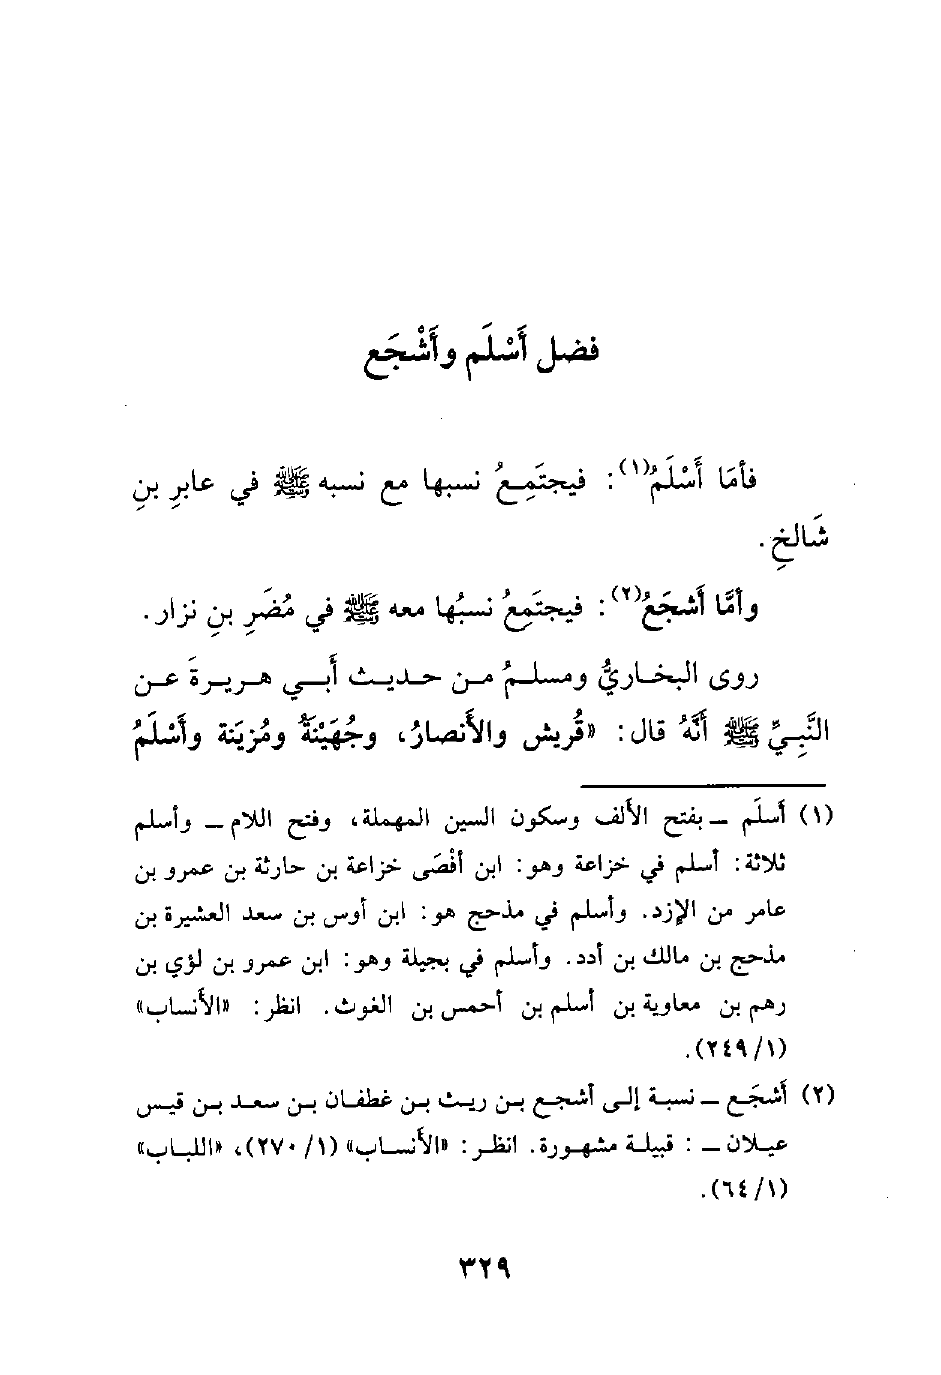 فضل أَسْلَم وأَشْجَع
فأمَا أَسْلَمُ(١): فيجتَمِعُ نسبها مع نسبه ﷺ في عابرِ بنِ
شَالخِ.
وأمَّا أَشجَعُ(٢): فيجتَمِعُ نسبُها معه ﷺ في مُضَرِ بنِ نزار.
روى البخاريُّ ومسلمُ من حديث أَبي هريرةَ عن
النَّبِيِّ ﷺ أَنَّهُ قال: «قُريش والأَنصارُ، وجُهَيْنَةُ ومُزيَنة وأَسْلَمُ
(١) أَسلَم ـ بفتح الألف وسكون السين المهملة، وفتح اللام ـ وأسلم
ثلاثة: أسلم في خزاعة وهو: ابن أفْصَى خزاعة بن حارثة بن عمرو بن
عامر من الإزد. وأسلم في مذحج هو: ابن أوس بن سعد العشيرة بن
مذحج بن مالك بن أدد. وأسلم في بجيلة وهو: ابن عمرو بن لؤي بن
رهم بن معاوية بن أسلم بن أحمس بن الغوث. انظر: «الأنساب»
(٢٤٩/١).
(٢) أَشجَع ـ نسبة إلى أشجع بن ريث بن غطفان بن سعد بن قيس
عيلان ـ : قبيلة مشهورة. انظر: «الأنساب» (٢٧٠/١)، «اللباب»
(٦٤/١).
٣٢٩